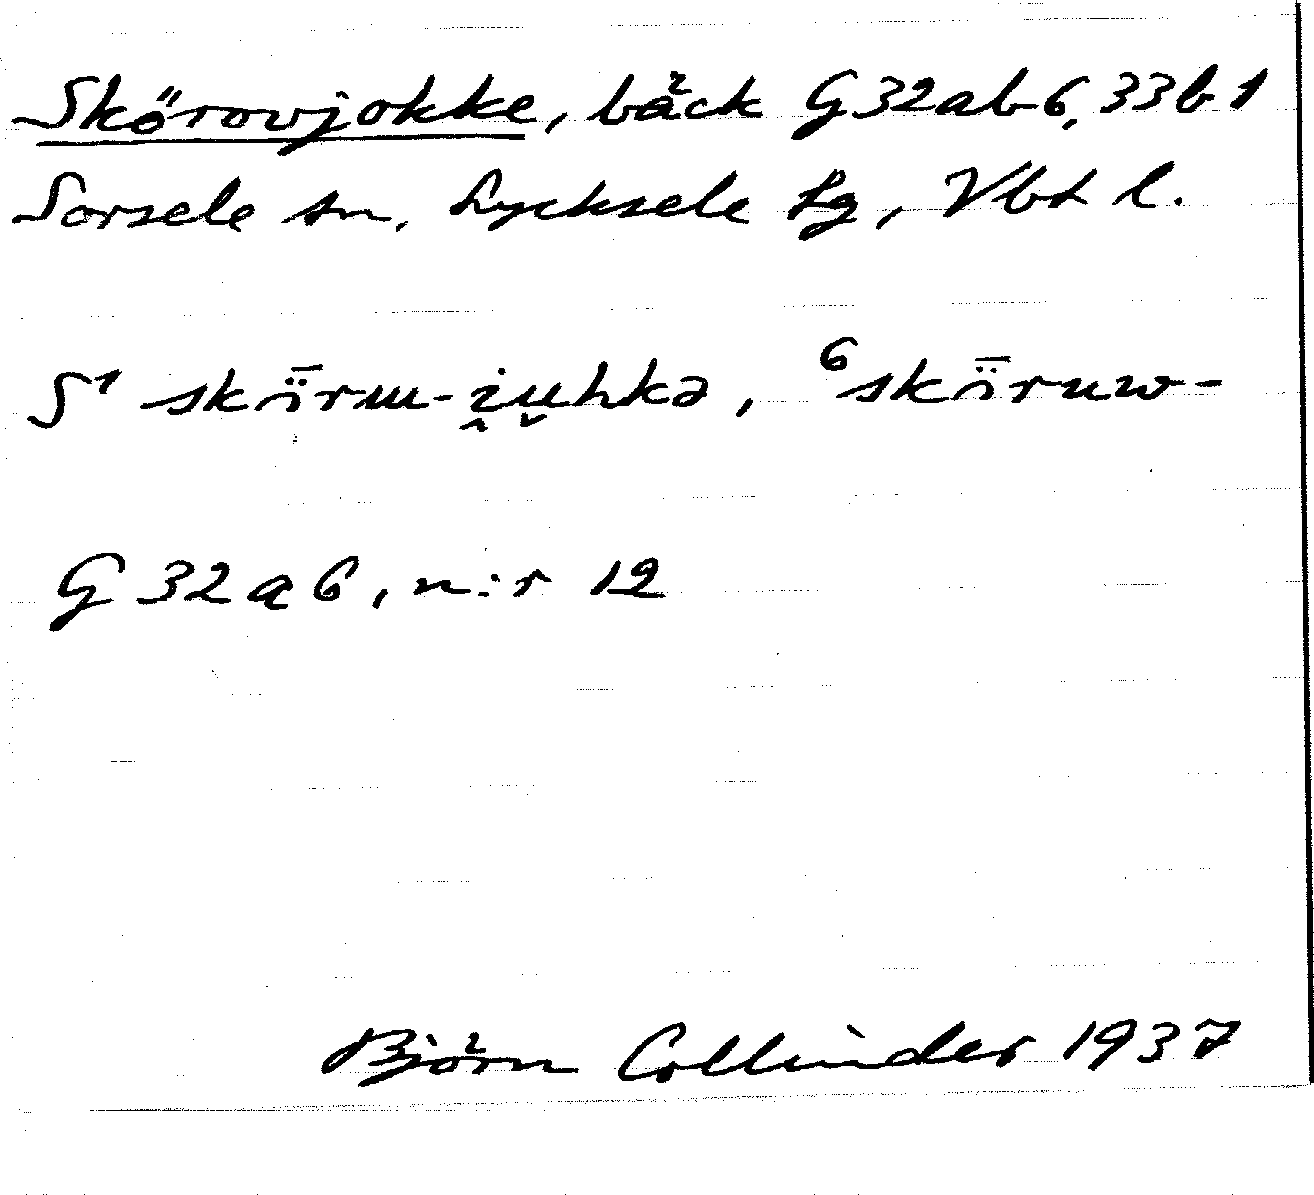 Skörovjokke, bäck G32ab6, 33b1
Sorsele sn, Lycksele Lg, Vbt l.
S¹ skɑ̈̄rɯ-i̯u̯hkə, ⁶skɑ̈̄ruw-
G 32 a 6, n:r 12
Björn Collinder 1937